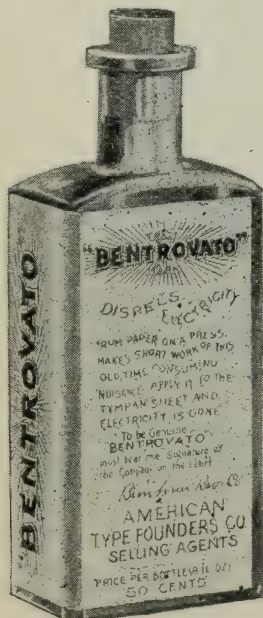 "BENTROVATO"
DISPELS
ELECTRICITY
FROM PAPER ON A PRESS.
MAKES SHORT WORK OF THIS
OLD, TIME CONSUMING
NUISANCE. APPLY IT TO THE
TYMPAN SHEET AND
ELECTRICITY IS GONE
To be Genuine
"BENTROVATO"
must bear the Signature of
the Company on the Label
AMERICAN
TYPE FOUNDERS CO
SELLING AGENTS
PRICE PER BOTTLE
50 CENTS
BENTROVATO